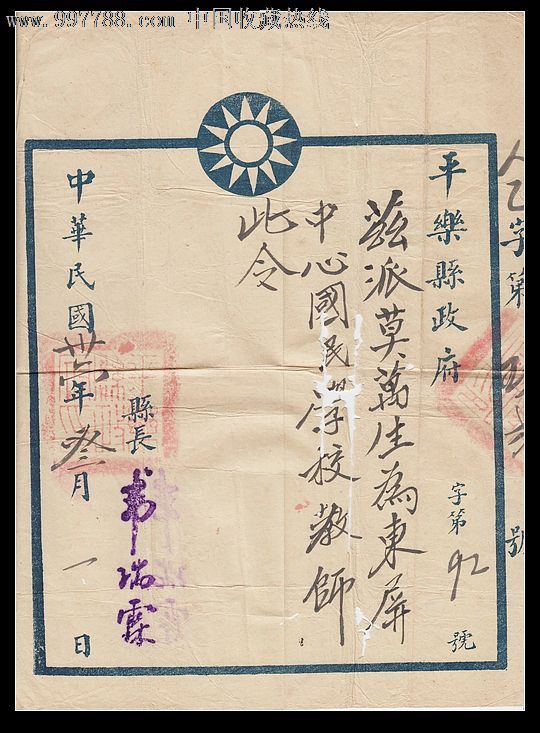 www.997788.com 中国收藏热线
平樂縣政府
字第92號
茲派莫萬生為東屏
中心國民學校教師
此令
縣長 韋瑞霖
中華民國卅六年叁月一日
字第
號